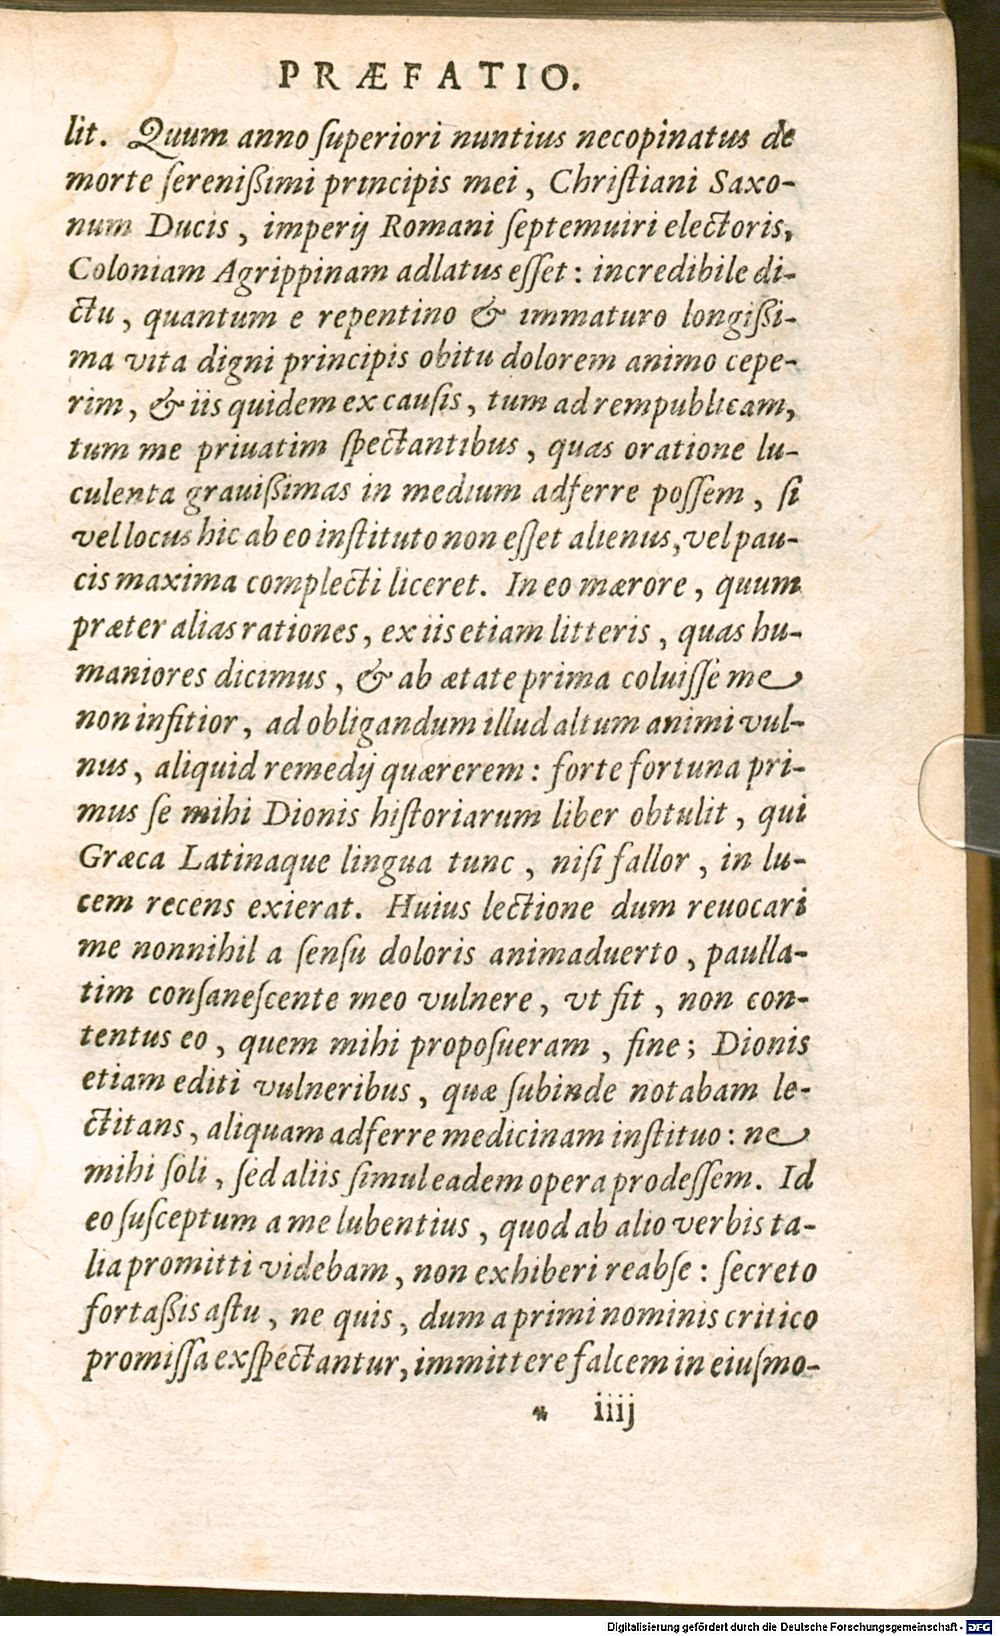 PRÆFATIO.
lit. Quum anno ſuperiori nuntius necopinatus de
morte ſerenißimi principis mei, Chriſtiani Saxo-
num Ducis, imperij Romani ſeptemuiri electoris,
Coloniam Agrippinam adlatus eſſet: incredibile di-
ctu, quantum e repentino & immaturo longißi-
ma vita digni principis obitu dolorem animo cepe-
rim, & iis quidem ex cauſis, tum ad rempublicam,
tum me priuatim ſpectantibus, quas oratione lu-
culenta grauißimas in medium adferre poſſem, ſi
vel locus hic ab eo inſtituto non eſſet alienus, vel pau-
cis maxima complecti liceret. In eo mærore, quum
præter alias rationes, ex iis etiam litteris, quas hu-
maniores dicimus, & ab ætate prima coluiſſe me
non infitior, ad obligandum illud altum animi vul-
nus, aliquid remedij quærerem: forte fortuna pri-
mus ſe mihi Dionis hiſtoriarum liber obtulit, qui
Græca Latinaque lingua tunc, niſi fallor, in lu-
cem recens exierat. Huius lectione dum reuocari
me nonnihil a ſenſu doloris animaduerto, paulla-
tim conſaneſcente meo vulnere, vt fit, non con-
tentus eo, quem mihi propoſueram, fine; Dionis
etiam editi vulneribus, quæ ſubinde notabam le-
ctitans, aliquam adferre medicinam inſtituo: ne
mihi ſoli, ſed aliis ſimul eadem opera prodeſſem. Id
eo ſuſceptum a me lubentius, quod ab alio verbis ta-
lia promitti videbam, non exhiberi reabſe: ſecreto
fortaßis aſtu, ne quis, dum a primi nominis critico
promiſſa exſpectantur, immittere falcem in eiuſmo-
* iiij
Digitalisierung gefördert durch die Deutsche Forschungsgemeinschaft - DFG